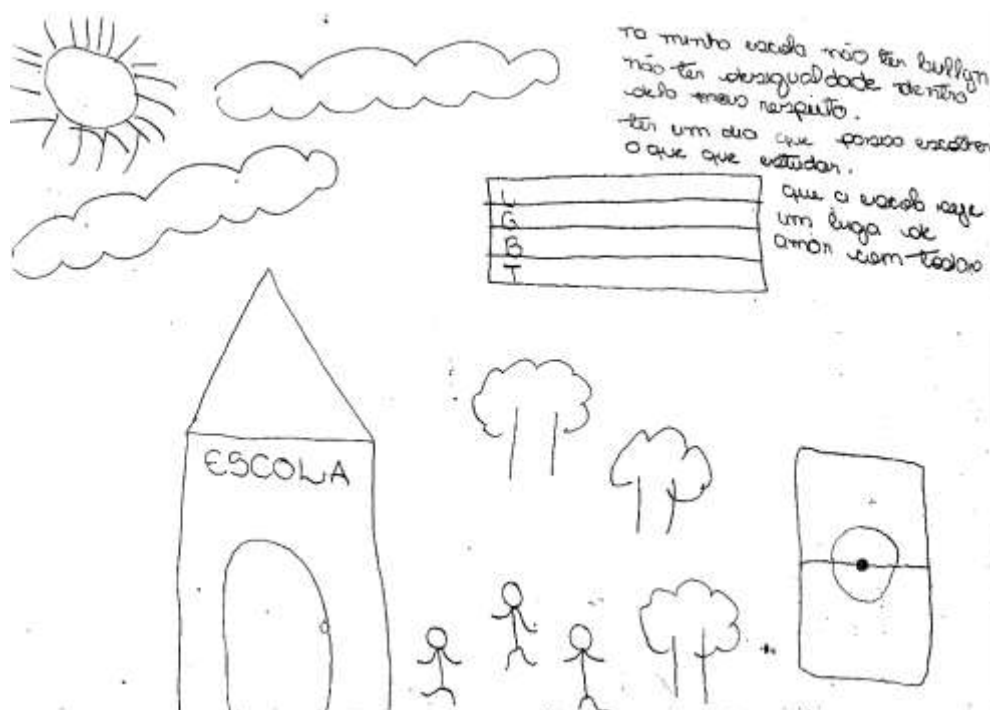 na minha escola não ter bullyn
não ter desigualdade dentro
dela mais respeito.
ter um dia que posso escolher
o que que estudar.
que a escola seje
um luga de
amor com todos
L
G
B
T
ESCOLA